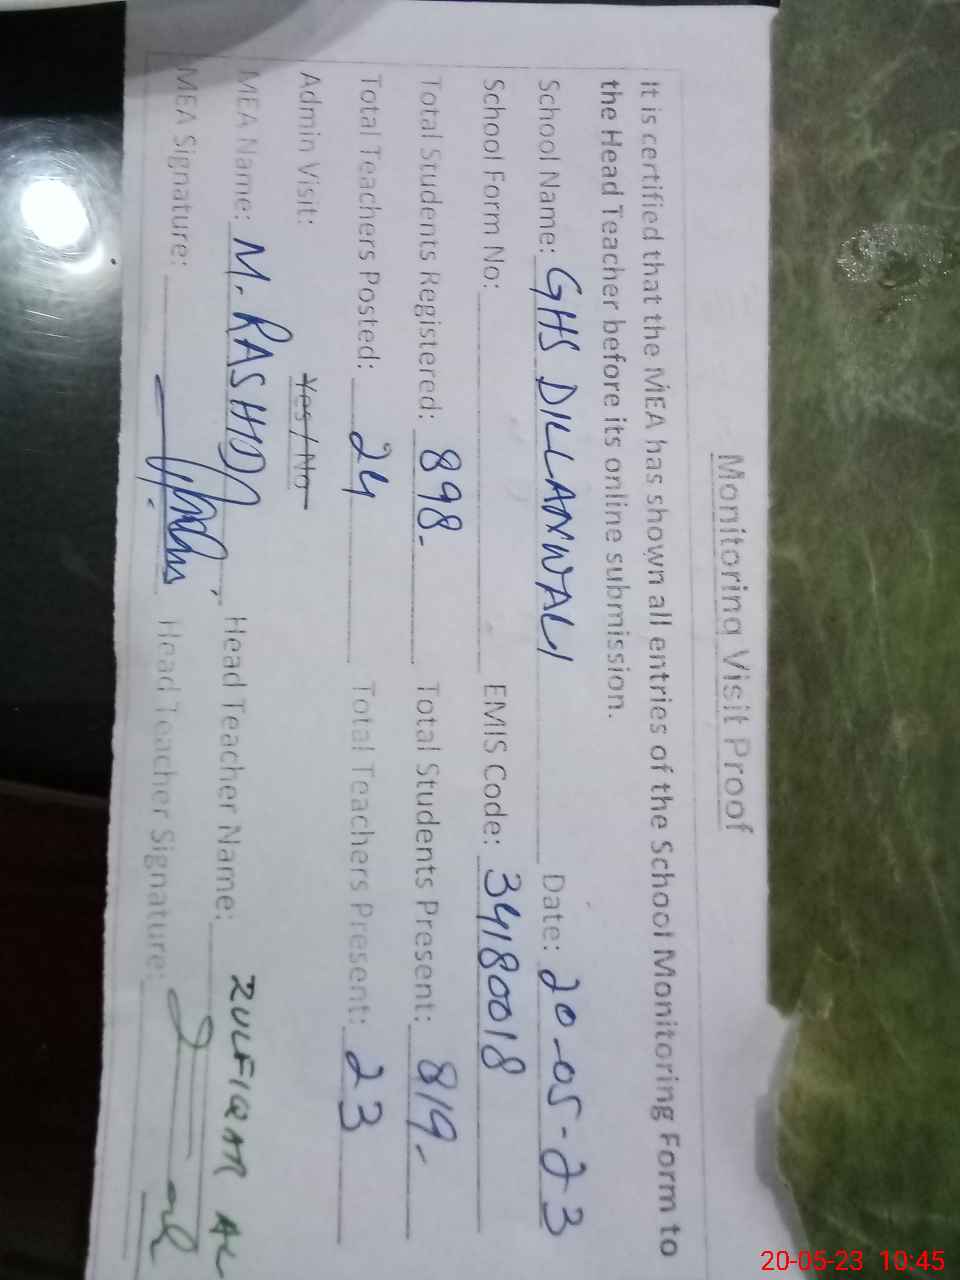 Monitoring Visit Proof
It is certified that the MEA has shown all entries of the School Monitoring Form to
the Head Teacher before its online submission.
School Name: GHS DILLANWALI Date: 20-05-23
School Form No: EMIS Code: 34180018
Total Students Registered: 898- Total Students Present: 819-
Total Teachers Posted: 24 Total Teachers Present: 23
Admin Visit: Yes / No
MEA Name: M. RASHID Head Teacher Name: ZULFIQAR
MEA Signature: Head Teacher Signature:
20-05-23 10:45